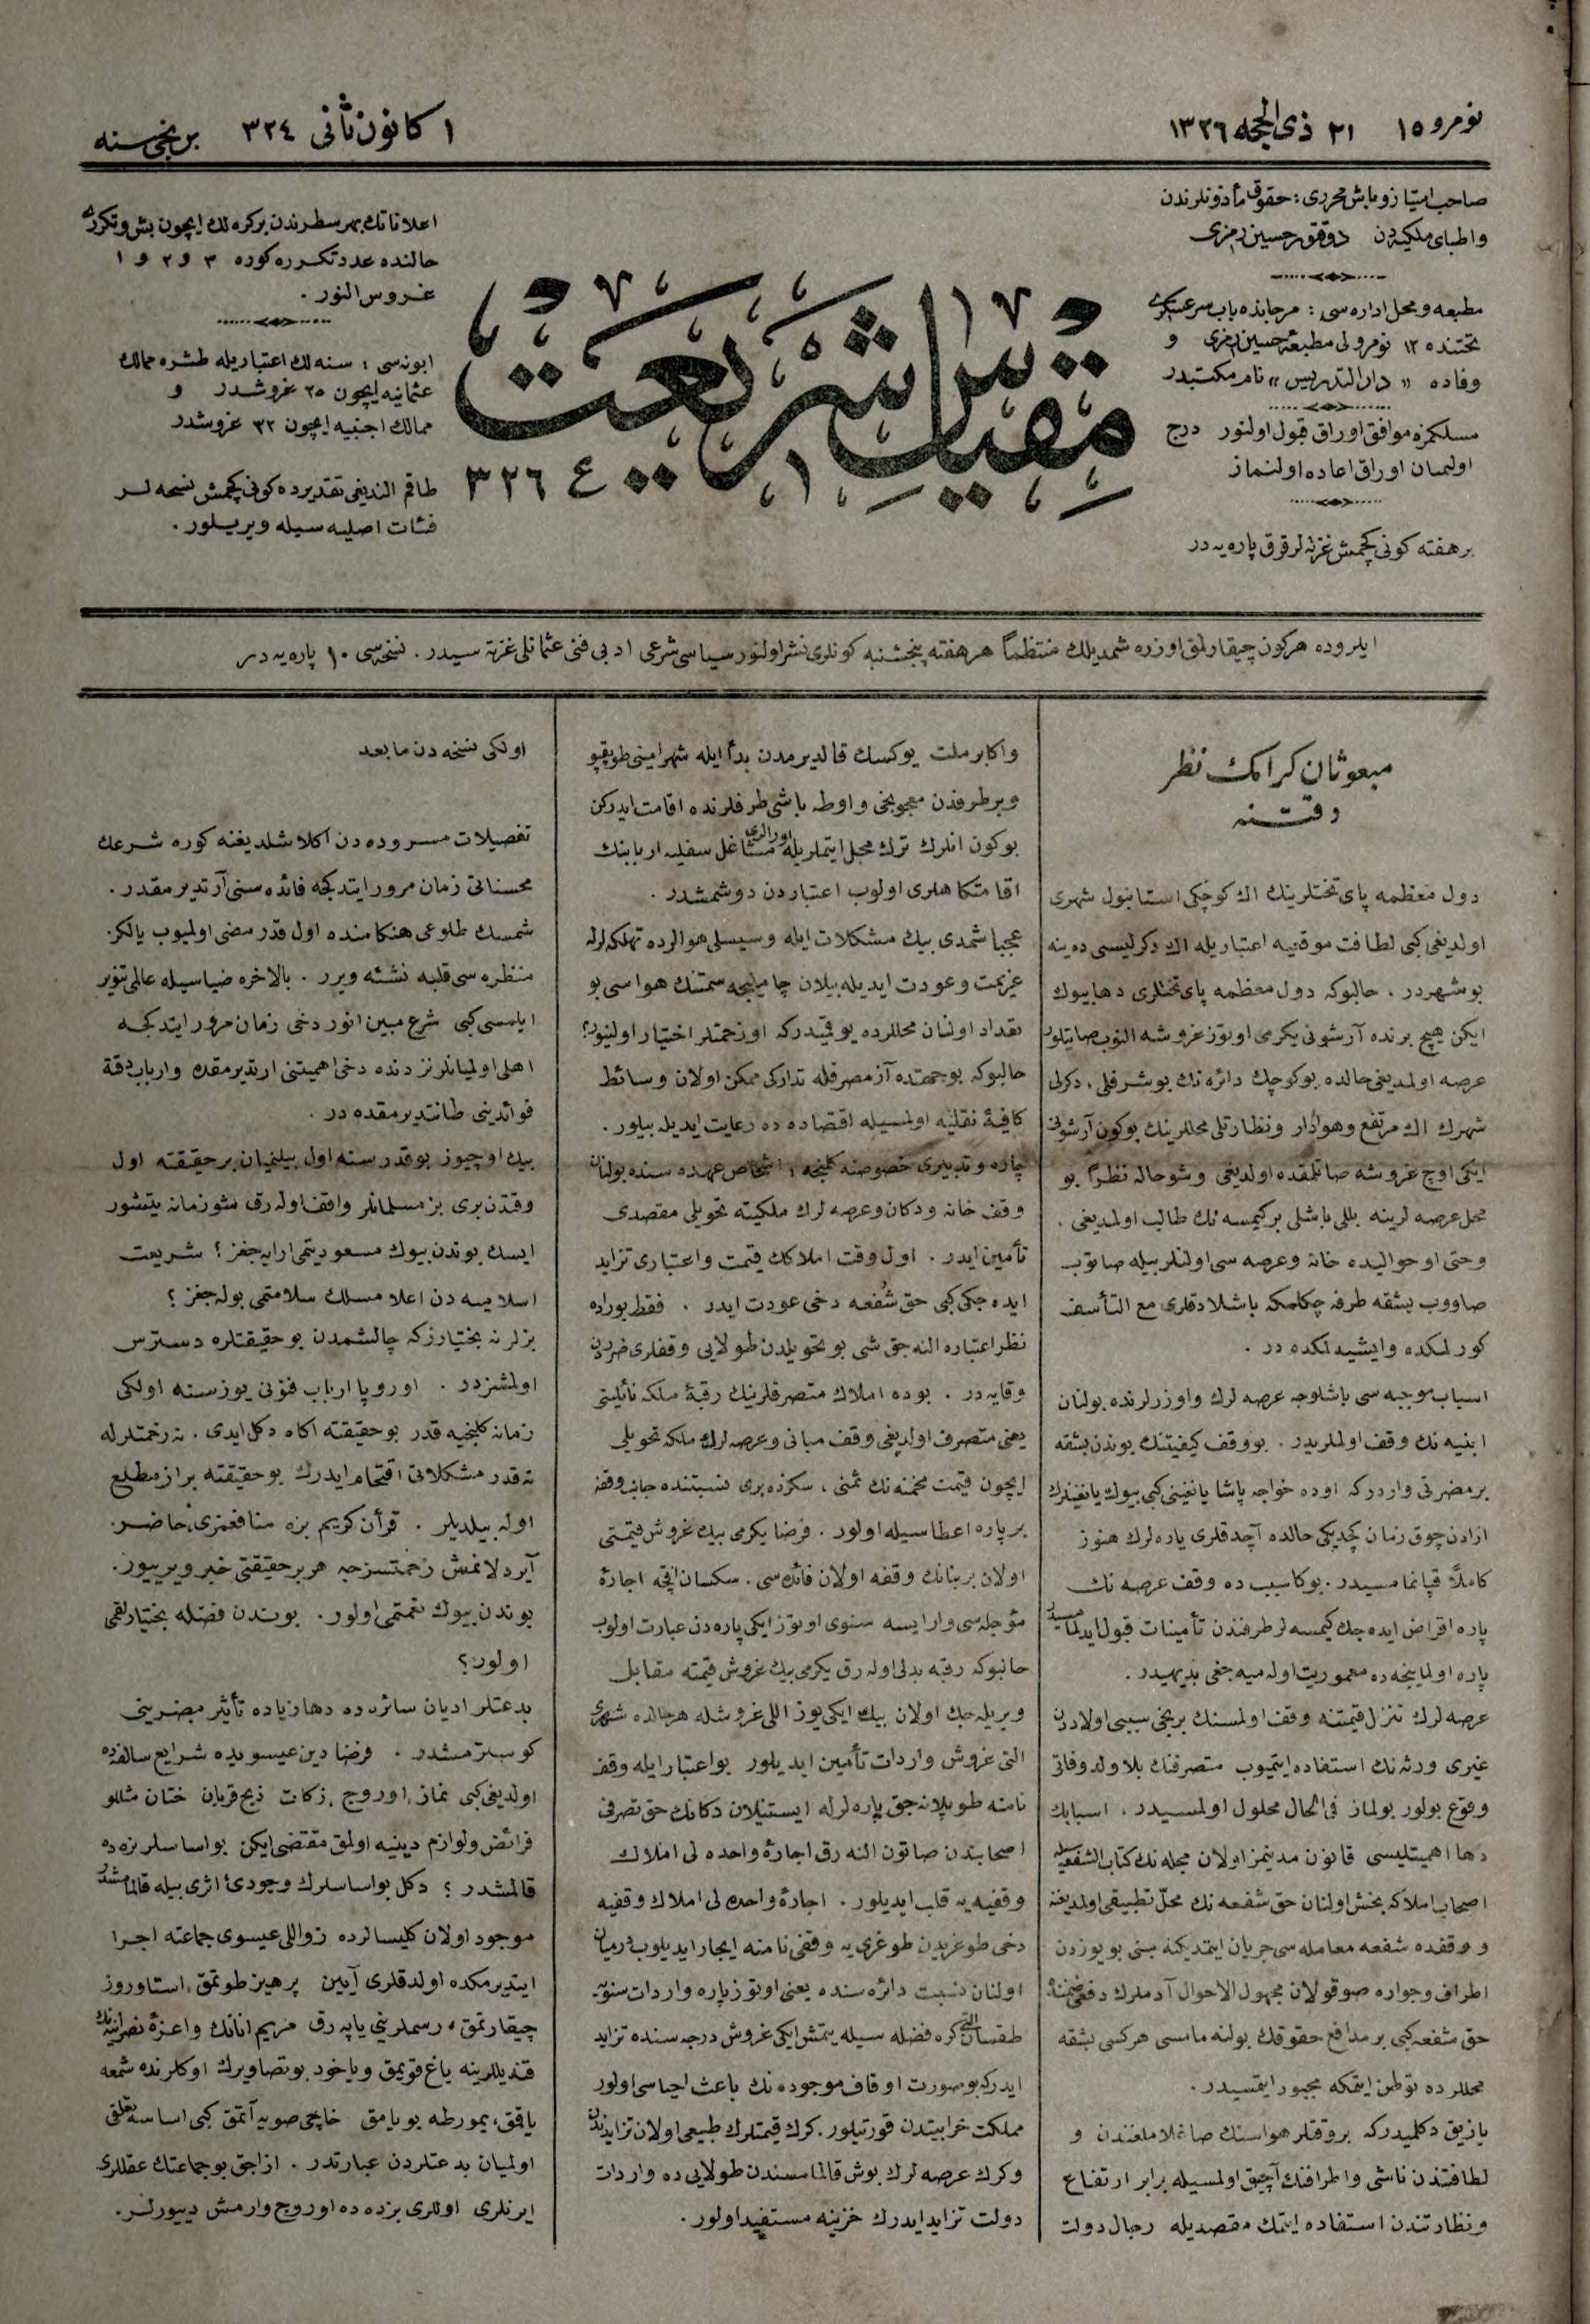 نومرو ١٥
٢١ ذی الحجه ١٣٢٦
١ كانون ثانی ٣٢٤
برنجی سنه
صاحب امتیاز و باش محرری : حقوق مأذونلرندن
واطبای ملكیه دن دوقتور حسین رمزی
مطبعه و محل اداره سی : مرجانده باب سرعسكری
تحتنده ١٢ نومرولی مطبعۀ حسین رمزی و
وفاده « دار التدریس » نام مكتبدر
مسلكمزه موافق اوراق قبول اولنور درج
اولنمیان اوراق اعاده اولنماز
بر هفته كونی كچمش غزته لر قرق پاره یه در
مقیاس شریعت
ع ٣٢٦
اعلاناتك بهر سطرندن بر كره لك ایچون بش و تكرری
حالنده عدد تكرره كوره ٣ و ٢ و ١
غروس النور .
ابونه سی : سنه لك اعتباریله طشره ممالك
عثمانیه ایچون ٢٥ غروشدر و
ممالك اجنبیه ایچون ٣٢ غروشدر
طاقم النديغی تقدیرده كونی كچمش نسخه لر
فئات اصلیه سیله ویریلور .
ایلروده هركون چیقارلمق اوزره شمدیلك منتظماً هر هفته پنجشنبه كونلری نشر اولنور سیاسی شرعی ادبی فنی عثمانلی غزته سیدر . نسخه سی ١٠ پاره یه در
مبعوثان كرامك نظر
دقتنه
دول معظمه پای تختلرینك اك كوچكی استانبول شهری
اولدیغی كبی لطافت موقعیه اعتباریله اك دكرلیسی ده ینه
بو شهردر . حالبوكه دول معظمه پای تختلری دها بیوك
ایكن هیچ برنده آرشونی یكرمی اوتوز غروشه النوب صاتیلور
عرصه اولمدیغی حالده بو كوچك دائره نك بو شرفلی ، دكرلی
شهرك اك مرتفع وهوادار ونظارتلی محللرینك بوكون آرشونی
ایكی اوچ غروشه صاتلمقده اولدیغی وشو حاله نظراً بو
محل عرصه لرینه بللی باشلی بر كیمسه نك طالب اولمدیغی .
وحتی او حوالیده خانه وعرصه سی اولنلر بیله صاتوب
صاووب بشقه طرفه چكلمكه باشلادقلری مع التأسف
كورلمكده وایشیدلمكده در .
اسباب موجبه سی باشلوجه عرصه لرك واوزرلرنده بولنان
ابنیه نك وقف اولملریدر . بو وقف كیفیتنك بوندن بشقه
بر مضرتی واردركه اوده خواجه پاشا یانغینی كبی بیوك یانغینلرك
ارادن چوق زمان كچدیكی حالده آچدقلری یاره لرك هنوز
كاملاً قپانمامسیدر . بوكا سبب ده وقف عرصه نك
پاره اقراض ایده جك كیمسه لر طرفندن تأمینات قبول ایدلمامسیدر
پاره اولماینجه ده معموریت اوله میه جغی بدیهیدر .
عرصه لرك تنزل قیمتنه وقف اولمسنك برنجی سببی اولاددن
غیری ورثه نك استفاده ایتمیوب متصرفنك بلا ولد وفاتی
وقوع بولور بولماز فی الحال محلول اولمسیدر . اسبابك
دها اهمیتلیسی قانون مدنیمز اولان مجله نك كتاب الشفعه سیله
اصحاب املاكه بخش اولنان حق شفعه نك محل تطبیقی اولمدیغنه
و وقفده شفعه معامله سی جریان ایتمدیكنه مبنی بو یوزدن
اطراف وجواره صوقولان مجهول الاحوال آدملرك دفعی ضمننه
حق شفعه كبی بر مدافع حقوقك بولنه مامسی هركسی بشقه
محللرده توطن ایتمكه مجبور ایتمسیدر .
یازیق دكلمیدركه بر وقتلر هواسنك صاغلاملغندن و
لطافتندن ناشی واطرافنك آچیق اولمسیله برابر ارتفاع
ونظارتندن استفاده ایتمك مقصدیله رجال دولت
واكابر ملت یوكسك قالدیرمدن بدأ ایله شهر امینی طوپقپو
وبر طرفدن معجونجی واوطه باشی طرفلرنده اقامت ایدركن
بوكون انلرك ترك محل ایتملریله اورالری مشاغل سفلیه اربابنك
اقامتكاهلری اولوب اعتباردن دوشمشدر .
عجبا شمدی بیك مشكلات ایله وسیسلی هوالرده تهلكه لرله
عزیمت وعودت ایدیله بیلان چاملیجه سمتنك هواسی بو
تعداد اولنان محللرده یوقمیدركه او زحمتلر اختیار اولنیور؟
حالبوكه بو جهتده آز مصرفله تداركی ممكن اولان وسائط
كافیۀ نقلیه اولمسیله اقتصاده ده رعایت ایدیله بیلور .
چاره وتدبیری خصوصنه كلنجه ؛ اشخاص عهده سنده بولنان
وقف خانه ودكان وعرصه لرك ملكیته تحویلی مقصدی
تأمین ایدر . اول وقت املاكك قیمت واعتباری تزاید
ایده جكی كبی حق شفعه دخی عودت ایدر . فقط بوراده
نظر اعتباره النه جق شی بو تحویلدن طولایی وقفلری ضرردن
وقایه در . بوده املاك متصرفلرینك رقبۀ ملكه نائلیتی
یعنی متصرف اولدیغی وقف مبانی وعرصه لرك ملكه تحویلی
ایچون قیمت مخمنه نك ثمنی ، سكزده بری نسبتنده جانب وقفه
بر پاره اعطاسیله اولور . فرضا یكرمی بیك غروش قیمتی
اولان بر بنانك وقفه اولان فائده سی . سكسان اقچه اجارۀ
مؤجله سی وار ایسه سنوی اوتوز ایكی پاره دن عبارت اولوب
حالبوكه رقبه بدلی اوله رق یكرمی بیك غروش قیمته مقابل
ویریله جك اولان بیك ایكی یوز اللی غروشله هر حالده شهری
التی غروش واردات تأمین ایدیلور بو اعتبار ایله وقف
نامنه طوپلانه جق پاره لرله ایستنیلان دكانك حق تصرفی
اصحابندن صاتون النه رق اجارۀ واحده لی املاك
وقفیه یه قلب ایدیلور . اجارۀ واحده لی املاك وقفیه
دخی طوغریدن طوغری یه وقفی نامنه ایجار ایدیلوب درمیان
اولنان نسبت دائره سنده یعنی اوتوز پاره واردات سنویه
طقسان كره فضله سیله یتمش ایكی غروش درجه سنده تزاید
ایدركه بو صورت اوقاف موجوده نك باعث احیاسی اولور
مملكت خرابیتدن قورتیلور . كرك قیمتلرك طبیعی اولان تزایدندن
وكرك عرصه لرك بوش قالمامسندن طولایی ده واردات
دولت تزاید ایدرك خزینه مستفید اولور .
اولكی نسخه دن مابعد
تفصیلات مسروده دن اكلاشلدیغنه كوره شرعك
محسناتی زمان مرور ایتدكجه فائده سنی آرتدیرمقدر .
شمسك طلوعی هنكامنده اول قدر مضی اولمیوب یالكز
منظره سی قلبه نشئه ویرر . بالاخره ضیاسیله عالمی تنویر
ایلمسی كبی شرع مبین انور دخی زمان مرور ایتدكجه
اهلی اولمیانلر نزدنده دخی اهمیتنی ارتدیرمقده وارباب دقته
فوائدینی طانتدیرمقده در .
بیك اوچیوز بو قدر سنه اول بیلنمیان بر حقیقته اول
وقتدن بری بز مسلمانلر واقف اوله رق شو زمانه یتشور
ایسك بوندن بیوك مسعودیتمی ارایه جغز ؟ شریعت
اسلامیه دن اعلا مسلك سلامتمی بوله جغز ؟
بزلر نه بختیارز كه چالشمدن بو حقیقتلره دسترس
اولمشزدر . اوروپا ارباب فنونی یوز سنه اولكی
زمانه كلنجیه قدر بو حقیقته اكاه دكل ایدی . نه زحمتلرله
نه قدر مشكلاتی اقتحام ایدرك بو حقیقته براز مطلع
اوله بیلدیلر . قرأن كریم بزه منافعمزی حاضر .
آیردلانمش زحمتسزجه هر بر حقیقتی خبر ویرییور .
بوندن بیوك نعمتمی اولور . بوندن فضله بختیارلقمی
اولور؟
بدعتلر ادیان سائره ده دها زیاده تأثیر مضریتی
كوسترمشدر . فرضا دین عیسویده شرایع سالفه ده
اولدیغی كبی نماز ، اوروج ، زكات ذبح قربان ختان مثللو
فرائض ولوازم دینیه اولمق مقتضی ایكن بو اساسلر نره ده
قالمشدر ؟ دكل بو اساسلرك وجودی اثری بیله قالمامشدر
موجود اولان كلیسالرده زواللی عیسوی جماعته اجرا
ایتدیرمكده اولدقلری آیین پرهیز طوتمق ، استاوروز
چیقارتمق ، رسملرینی یاپه رق مریم انانك واعزۀ نصرانیه نك
قندیللرینه یاغ قویمق ویاخود بو تصاویرك اوكلرنده شمعه
یاقمق ، یمورطه بویامق خاچی صویه آتمق كبی اساسه تعلق
اولمیان بدعتلردن عبارتدر . ازاجق بو جماعتك عقللری
ایرنلری اوللری بزده ده اوروج وارمش دییورلر .